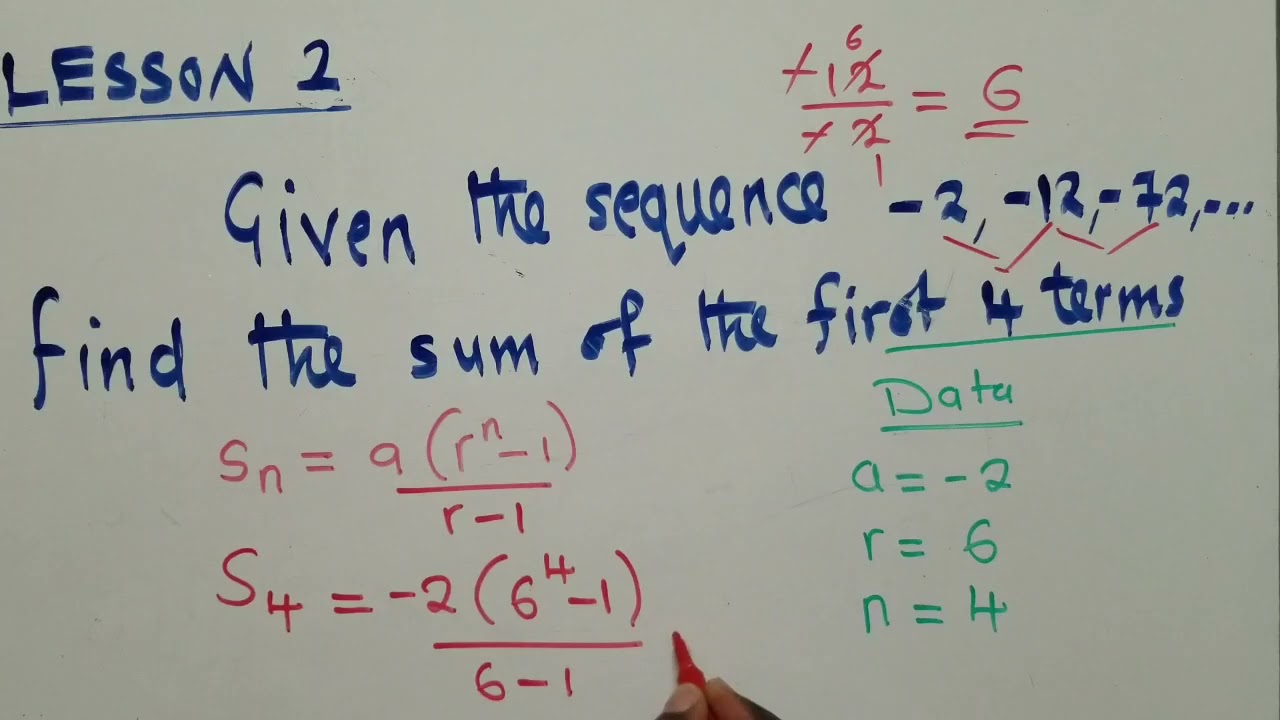 LESSON 2
-12/-2 = 6
6
1
Given the sequence -2, -12, -72, ...
find the sum of the first 4 terms
Data
Sn = a(r^n - 1)/r - 1
a = -2
r = 6
S4 = -2(6^4 - 1)/6 - 1
n = 4